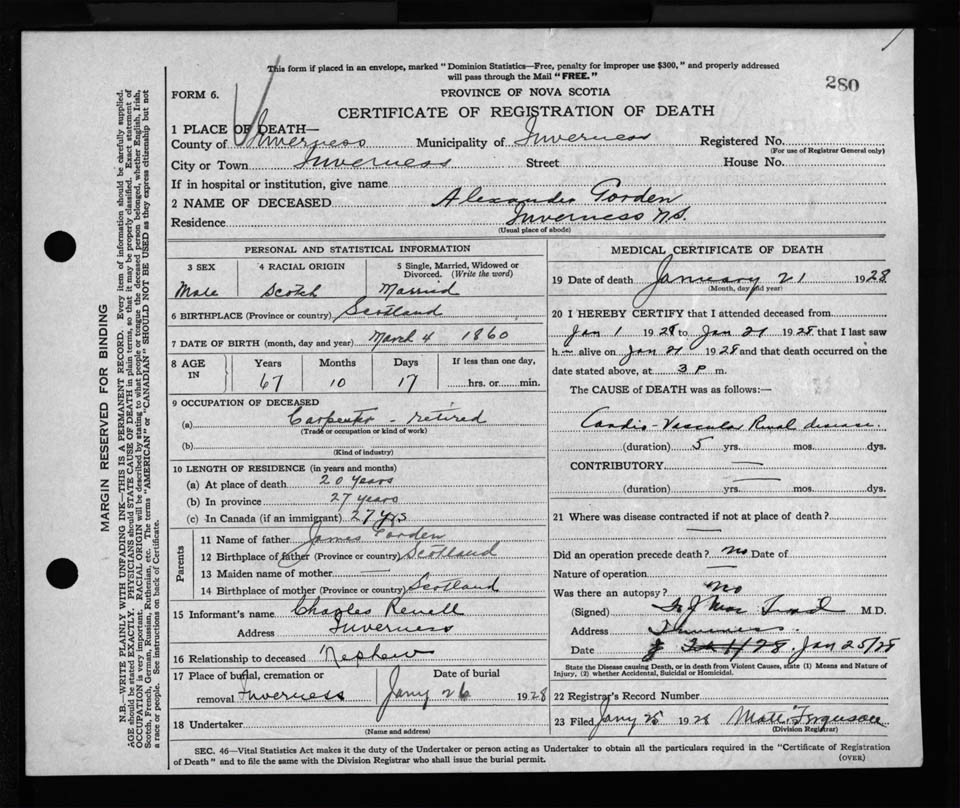 This form if placed in an envelope, marked "Dominion Statistics—Free, penalty for improper use $300," and properly addressed
will pass through the Mail "FREE."
280
FORM 6.
PROVINCE OF NOVA SCOTIA
CERTIFICATE OF REGISTRATION OF DEATH
1 PLACE OF DEATH—
County of Inverness Municipality of Inverness Registered No.
(For use of Registrar General only)
City or Town Inverness Street House No.
If in hospital or institution, give name
2 NAME OF DECEASED Alexander Gorden
Residence Inverness N.S.
(Usual place of abode)
PERSONAL AND STATISTICAL INFORMATION
3 SEX 4 RACIAL ORIGIN 5 Single, Married, Widowed or Divorced. (Write the word)
Male Scotch Married
6 BIRTHPLACE (Province or country) Scotland
7 DATE OF BIRTH (month, day and year) March 4 1860
8 AGE IN Years Months Days If less than one day,
67 10 17 hrs. or min.
9 OCCUPATION OF DECEASED
(a) Carpenter - retired
(Trade or occupation or kind of work)
(b)
(Kind of industry)
10 LENGTH OF RESIDENCE (in years and months)
(a) At place of death 20 years
(b) In province 27 years
(c) In Canada (if an immigrant) 27 yrs
Parents
11 Name of father James Gorden
12 Birthplace of father (Province or country) Scotland
13 Maiden name of mother —
14 Birthplace of mother (Province or country) Scotland
15 Informant's name Charles
Address Inverness
16 Relationship to deceased Nephew
17 Place of burial, cremation or Date of burial
removal Inverness Jany 26 1928
18 Undertaker
(Name and address)
MEDICAL CERTIFICATE OF DEATH
19 Date of death January 21 1928
(Month, day and year)
20 I HEREBY CERTIFY that I attended deceased from
Jan 1 1928 to Jan 21 1928 that I last saw
h— alive on Jan 21 1928 and that death occurred on the
date stated above, at 3 P m.
The CAUSE of DEATH was as follows:—
Cardio-Vascular Renal disease.
(duration) 5 yrs. mos. dys.
CONTRIBUTORY —
(duration) yrs. mos. dys.
21 Where was disease contracted if not at place of death?
—
Did an operation precede death? no Date of
Nature of operation —
Was there an autopsy? no
(Signed) M.D.
Address Inverness
Date Jan 25/28
State the Disease causing Death, or in death from Violent Causes, state (1) Means and Nature of
Injury, (2) whether Accidental, Suicidal or Homicidal.
22 Registrar's Record Number
23 Filed Jany 25 1928 Ferguson
(Division Registrar)
SEC. 46—Vital Statistics Act makes it the duty of the Undertaker or person acting as Undertaker to obtain all the particulars required in the "Certificate of Registration
of Death" and to file the same with the Division Registrar who shall issue the burial permit.
(OVER)
MARGIN RESERVED FOR BINDING
N.B.—WRITE PLAINLY WITH UNFADING INK—THIS IS A PERMANENT RECORD. Every item of information should be carefully supplied.
AGE should be stated EXACTLY. PHYSICIANS should STATE CAUSE OF DEATH in plain terms, so that it may be properly classified. Exact statement of
OCCUPATION is very important. RACIAL ORIGIN will be described by stating to what people or tongue the deceased person belonged, whether English, Irish,
Scotch, French, German, Russian, Ruthenian, etc. The terms "AMERICAN" or "CANADIAN" SHOULD NOT BE USED as they express citizenship but not
a race or people. See instructions on back of Certificate.